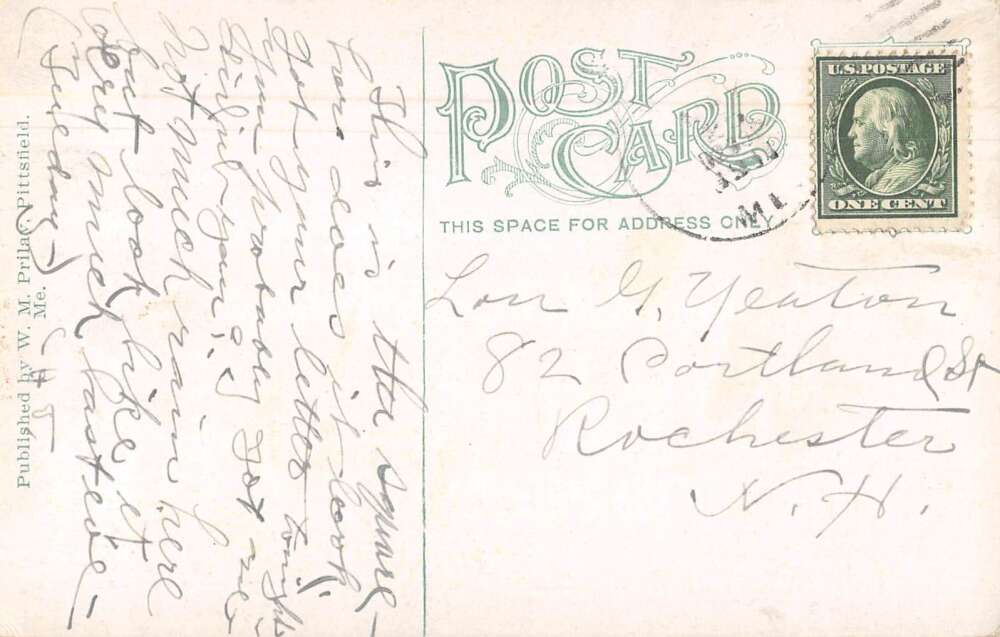 This is the square -
how does it look
Got your letter tonight
you probably got me
I got
Not much rain here
but look like it
very much
Tuesday
Published by W. M. Prilay, Pittsfield, Me.
POST CARD
THIS SPACE FOR ADDRESS ONLY
U.S. POSTAGE
ONE CENT
Lon G. Yeaton
82 Portland St
Rochester
N. H.